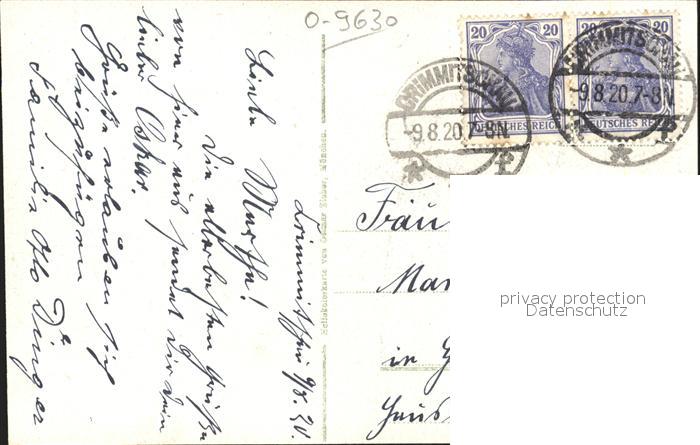 O-9630
20 20
20 20
DEUTSCHES REICH
DEUTSCHES REICH
CRIMMITSCHAU
-9.8.20.7-8N
CRIMMITSCHAU
-9.8.20.7-8N
Crimmitschau 9/8.20.
Liebe Martha!
Die allerbesten Grüße
von hier aus sendet Dir Dein
lieber Oskar.
Grüße erlauben sich
beizufügen
Familie Otto
Fräu
Mar
in G
Haus
privacy protection
Datenschutz